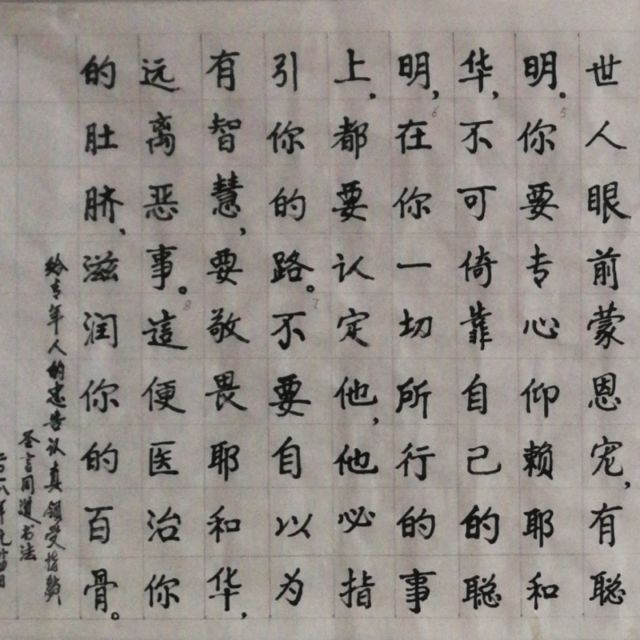 世人眼前蒙恩宠,有聪
明。你要专心仰赖耶和
华,不可倚靠自己的聪
明,在你一切所行的事
上,都要认定他,他必指
引你的路。不要自以为
有智慧,要敬畏耶和华,
远离恶事。這便医治你
的肚脐,滋润你的百骨。
给青年人的忠告认真领受